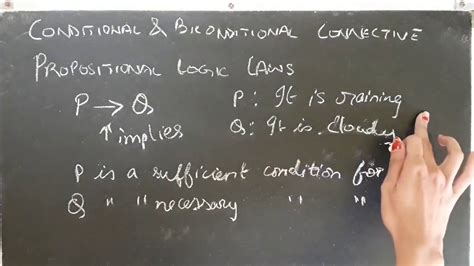 CONDITIONAL & BICONDITIONAL CONNECTIVE
PROPOSITIONAL LOGIC LAWS
P → Q P: It is raining
↑ implies Q: It is cloudy
P is a sufficient condition for
Q " " necessary " "